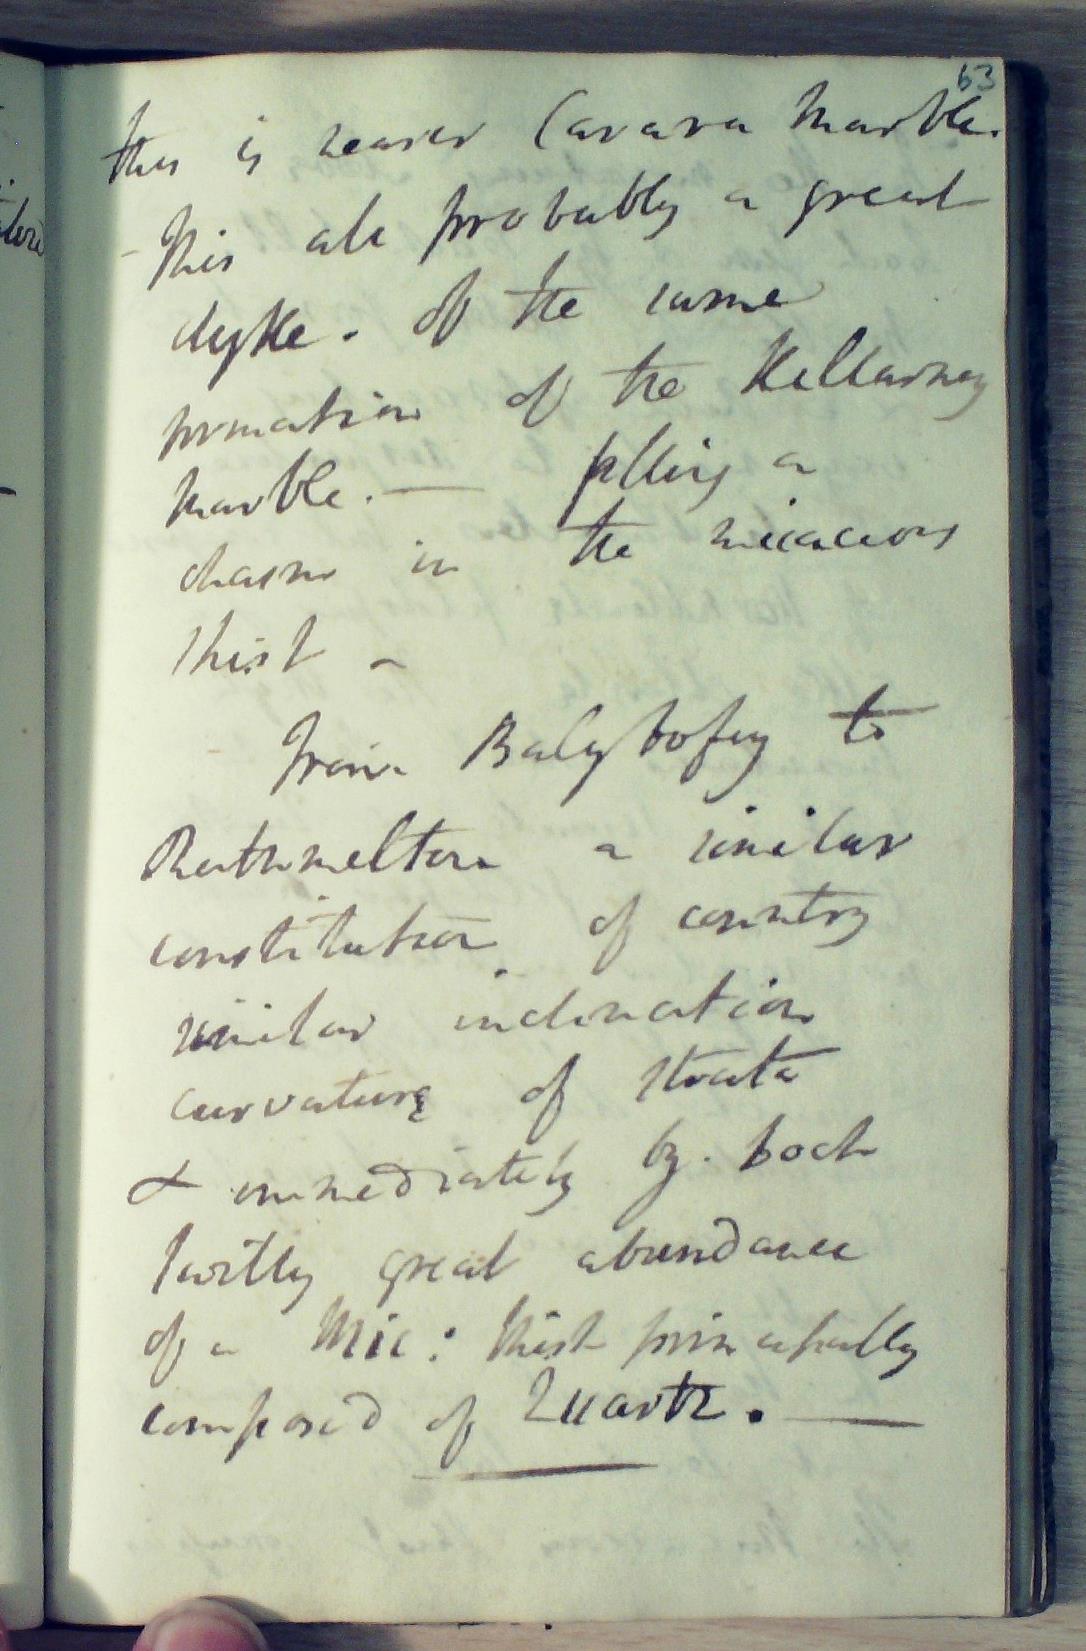 63
this is nearer Carara Marble.
- This also probably a great
dyke. of the same
formation of the Killarney
Marble. — filling a
chasm in the micaceous
Shist -
From Balybofey to
Rathmelton a similar
constitution of country
similar inclination
curvature of strata
& immediately by
Partly great abundance
of a Mic: Shist principally
composed of Quartz. —